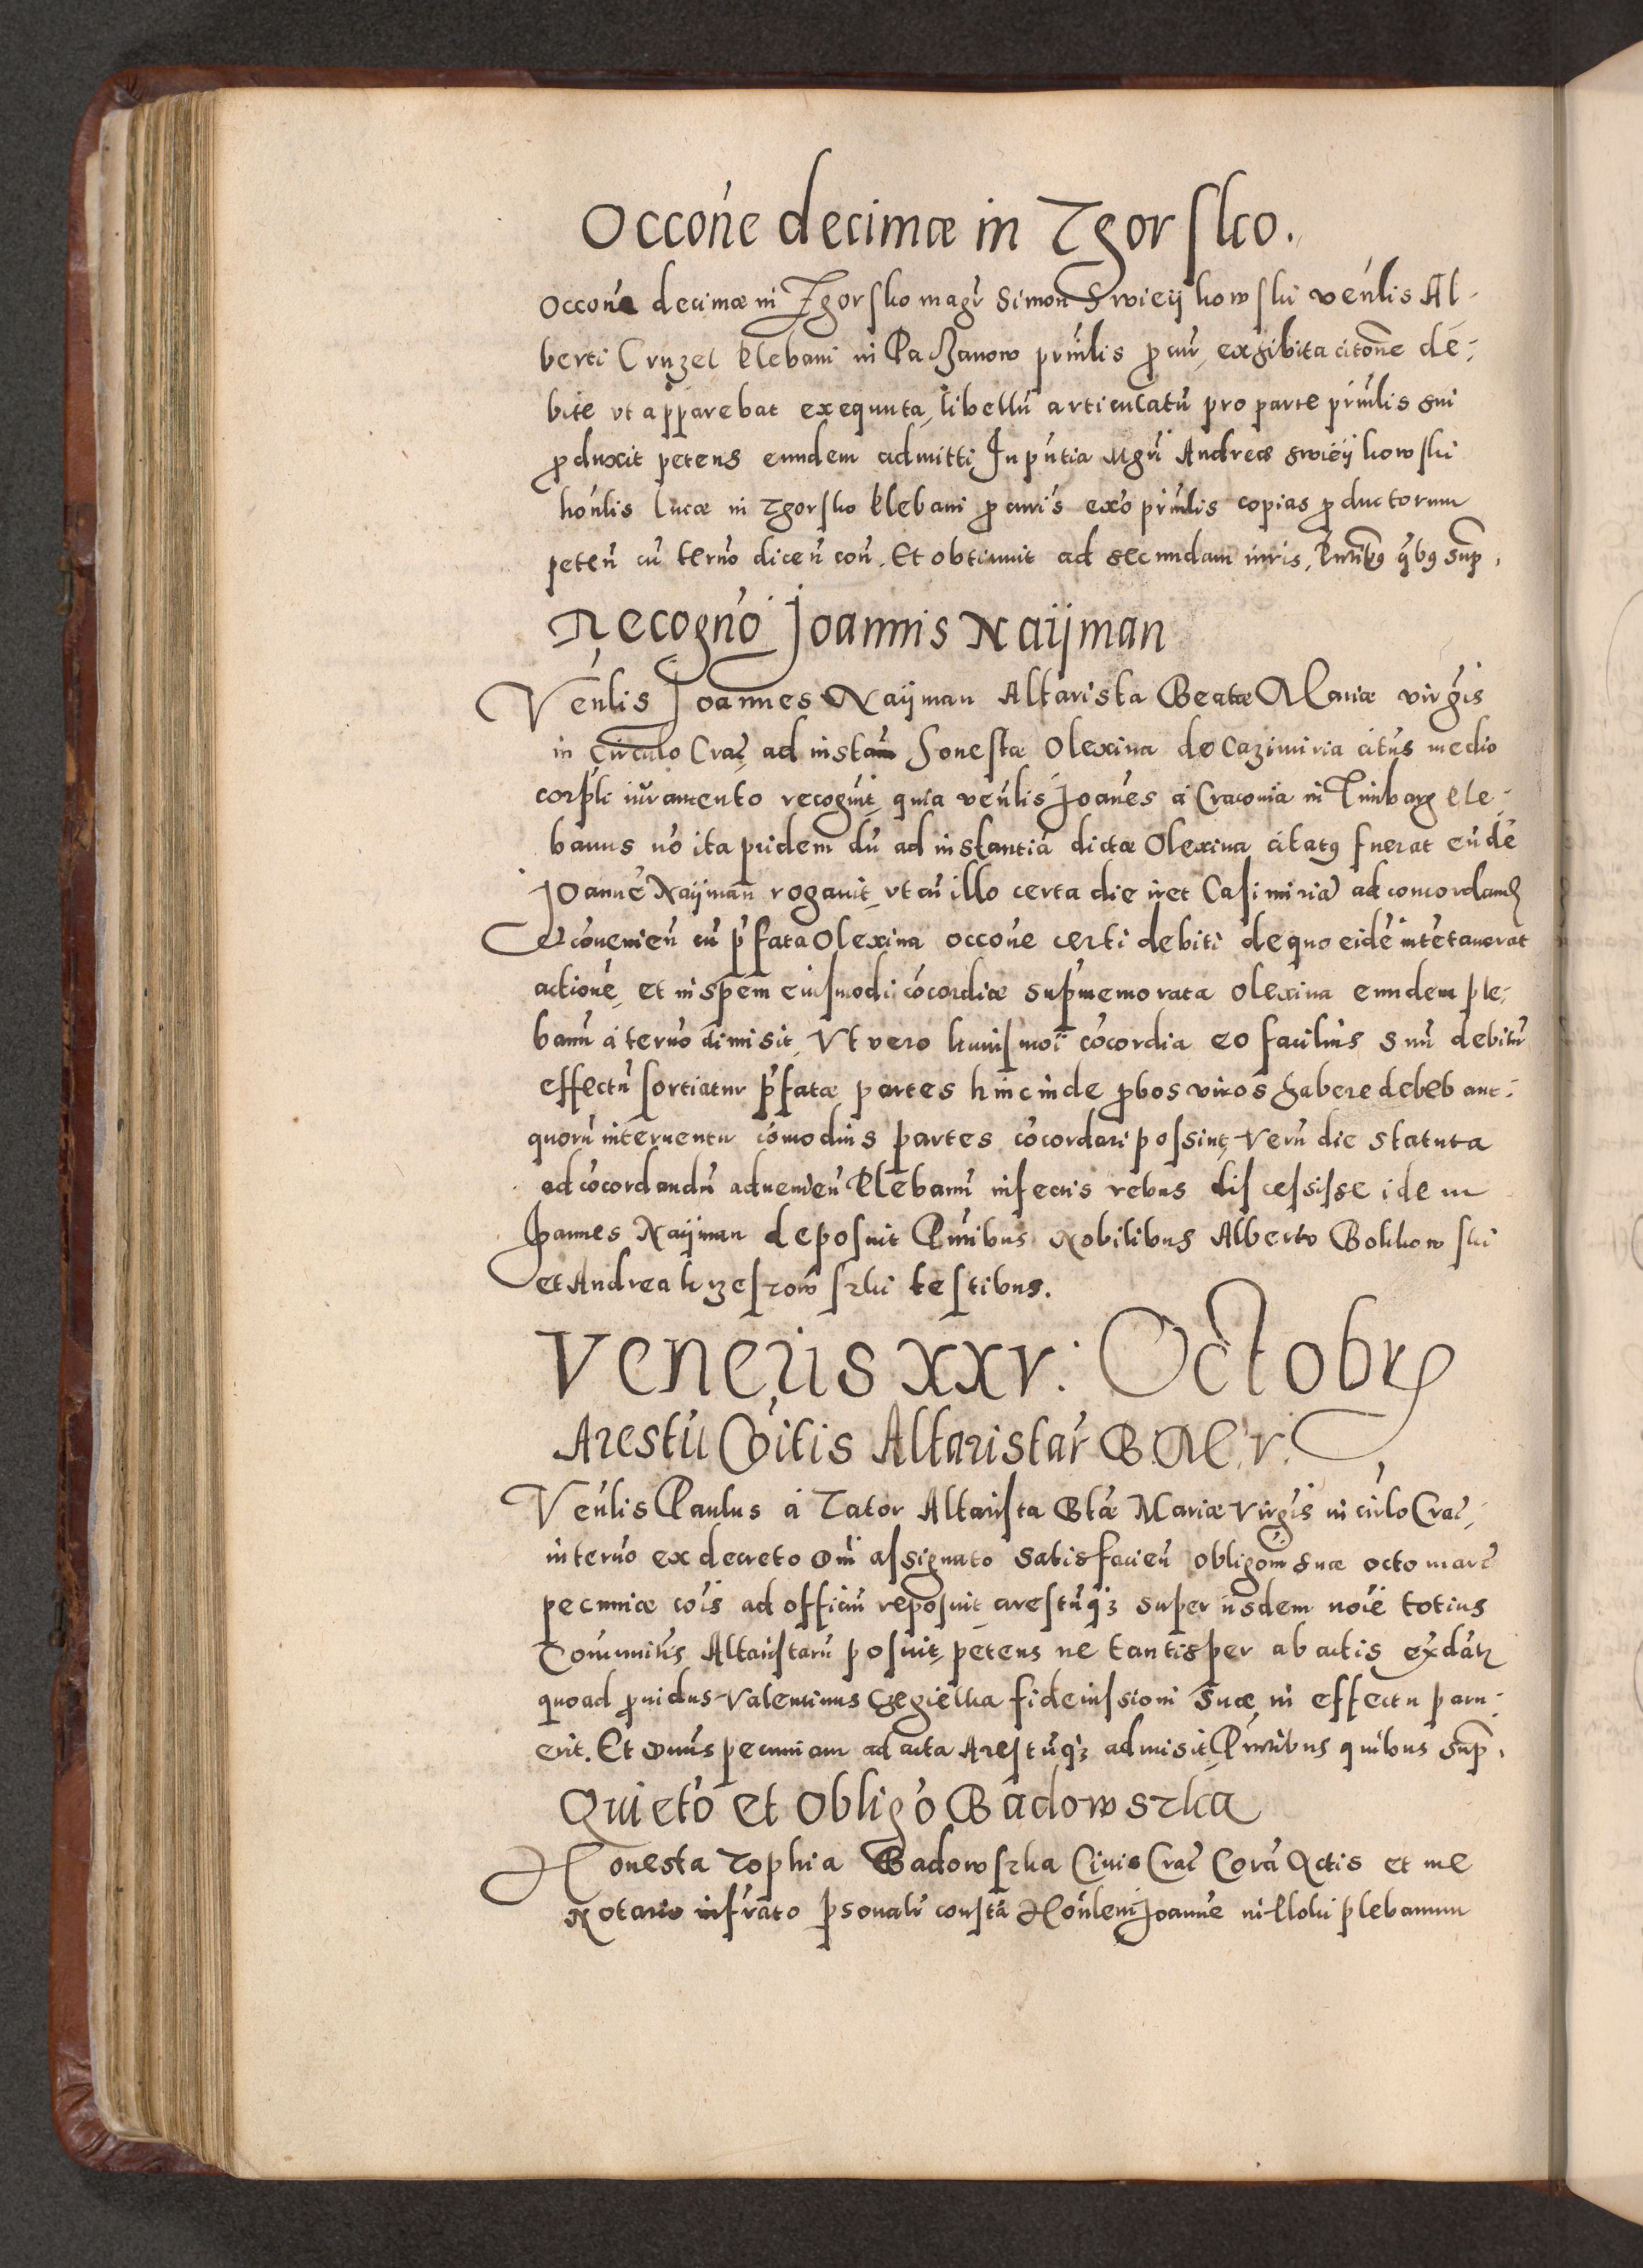 Occone decimæ in Zgorsko.
Occone decimæ in Zgorsko magr Simon Swieykowski venlis Al-
berti Cruzel Plebani in Paczanow prinlis procur, exhibita citone de-
bite vt apparebat exequuta, libellu articulatu pro parte prinlis sui
produxit petens eundem admitti, In pntia Mgri Andreæ Swieykowski
honlis Lucæ in Zgorsko Plebani procuris exo prinlis copias productorum
peten cu termo dicen con. Et obtinuit ad secundam iuris, Pntibus qbus sup.
Recogno Joannis Naijman
Venlis Joannes Naijman Altarista Beatæ Mariæ virgis
in Circulo Crac ad instan honestæ Olexina de Cazimiria citus medio
corpli iuramento recognit, quia venlis Joanes a Cracouia in Timbarg ple-
banus no ita pridem du ad instantia dictæ Olexina citatus fuerat eude
Joanne Naijman rogauit, vt cu illo certa die iret Casimiria ad concordand
et conenien cu prfata Olexina occone certi debiti de quo eide intetauerat
actione, et in spem eiusmodi cocordiæ supmemorata Olexina eundem ple-
banu a termo dimisit, Vt vero huiusmoi cocordia eo facilius suu debitu
effectu sortiatur prfatæ partes hincinde probos viros habere debebant-
quoru interuentu comodius partes cocordari possint, Veru die statuta
ad cocordandu adueniēn Plebanu infectis rebus discessisse idem
Joannes Naijman deposuit Pntibus Nobilibus Alberto Bokkowski
et Andrea Krzeszowszki testibus.
Veneris xxv: Octobris
Arestu Coitis Altaristar B. M. V.
Venlis Paulus a Zator Altarista Btæ Mariæ Virgis in cirlo Crac,
in termo ex decreto Dni assignato satisfacien obligoni suæ octo marc
pecuniæ cois ad officiu reposuit, arestuqz super iisdem noie totius
Comunitis Altaristaru posuit, petens ne tantisper ab actis exdatr
quoad prouidus Valentinus Czegielka fideiussioni suæ in effectu paru-
erit. Et Dnus pecuniam ad acta Arestuqz admisit, Pntibus quibus sup.
Quieto et Obligo Badowszka
Honesta Zophia Badowszka Ciuis Crac Cora Actis et me
Notario infrato psonalr consta Honlem Joanne in Kloki plebanum